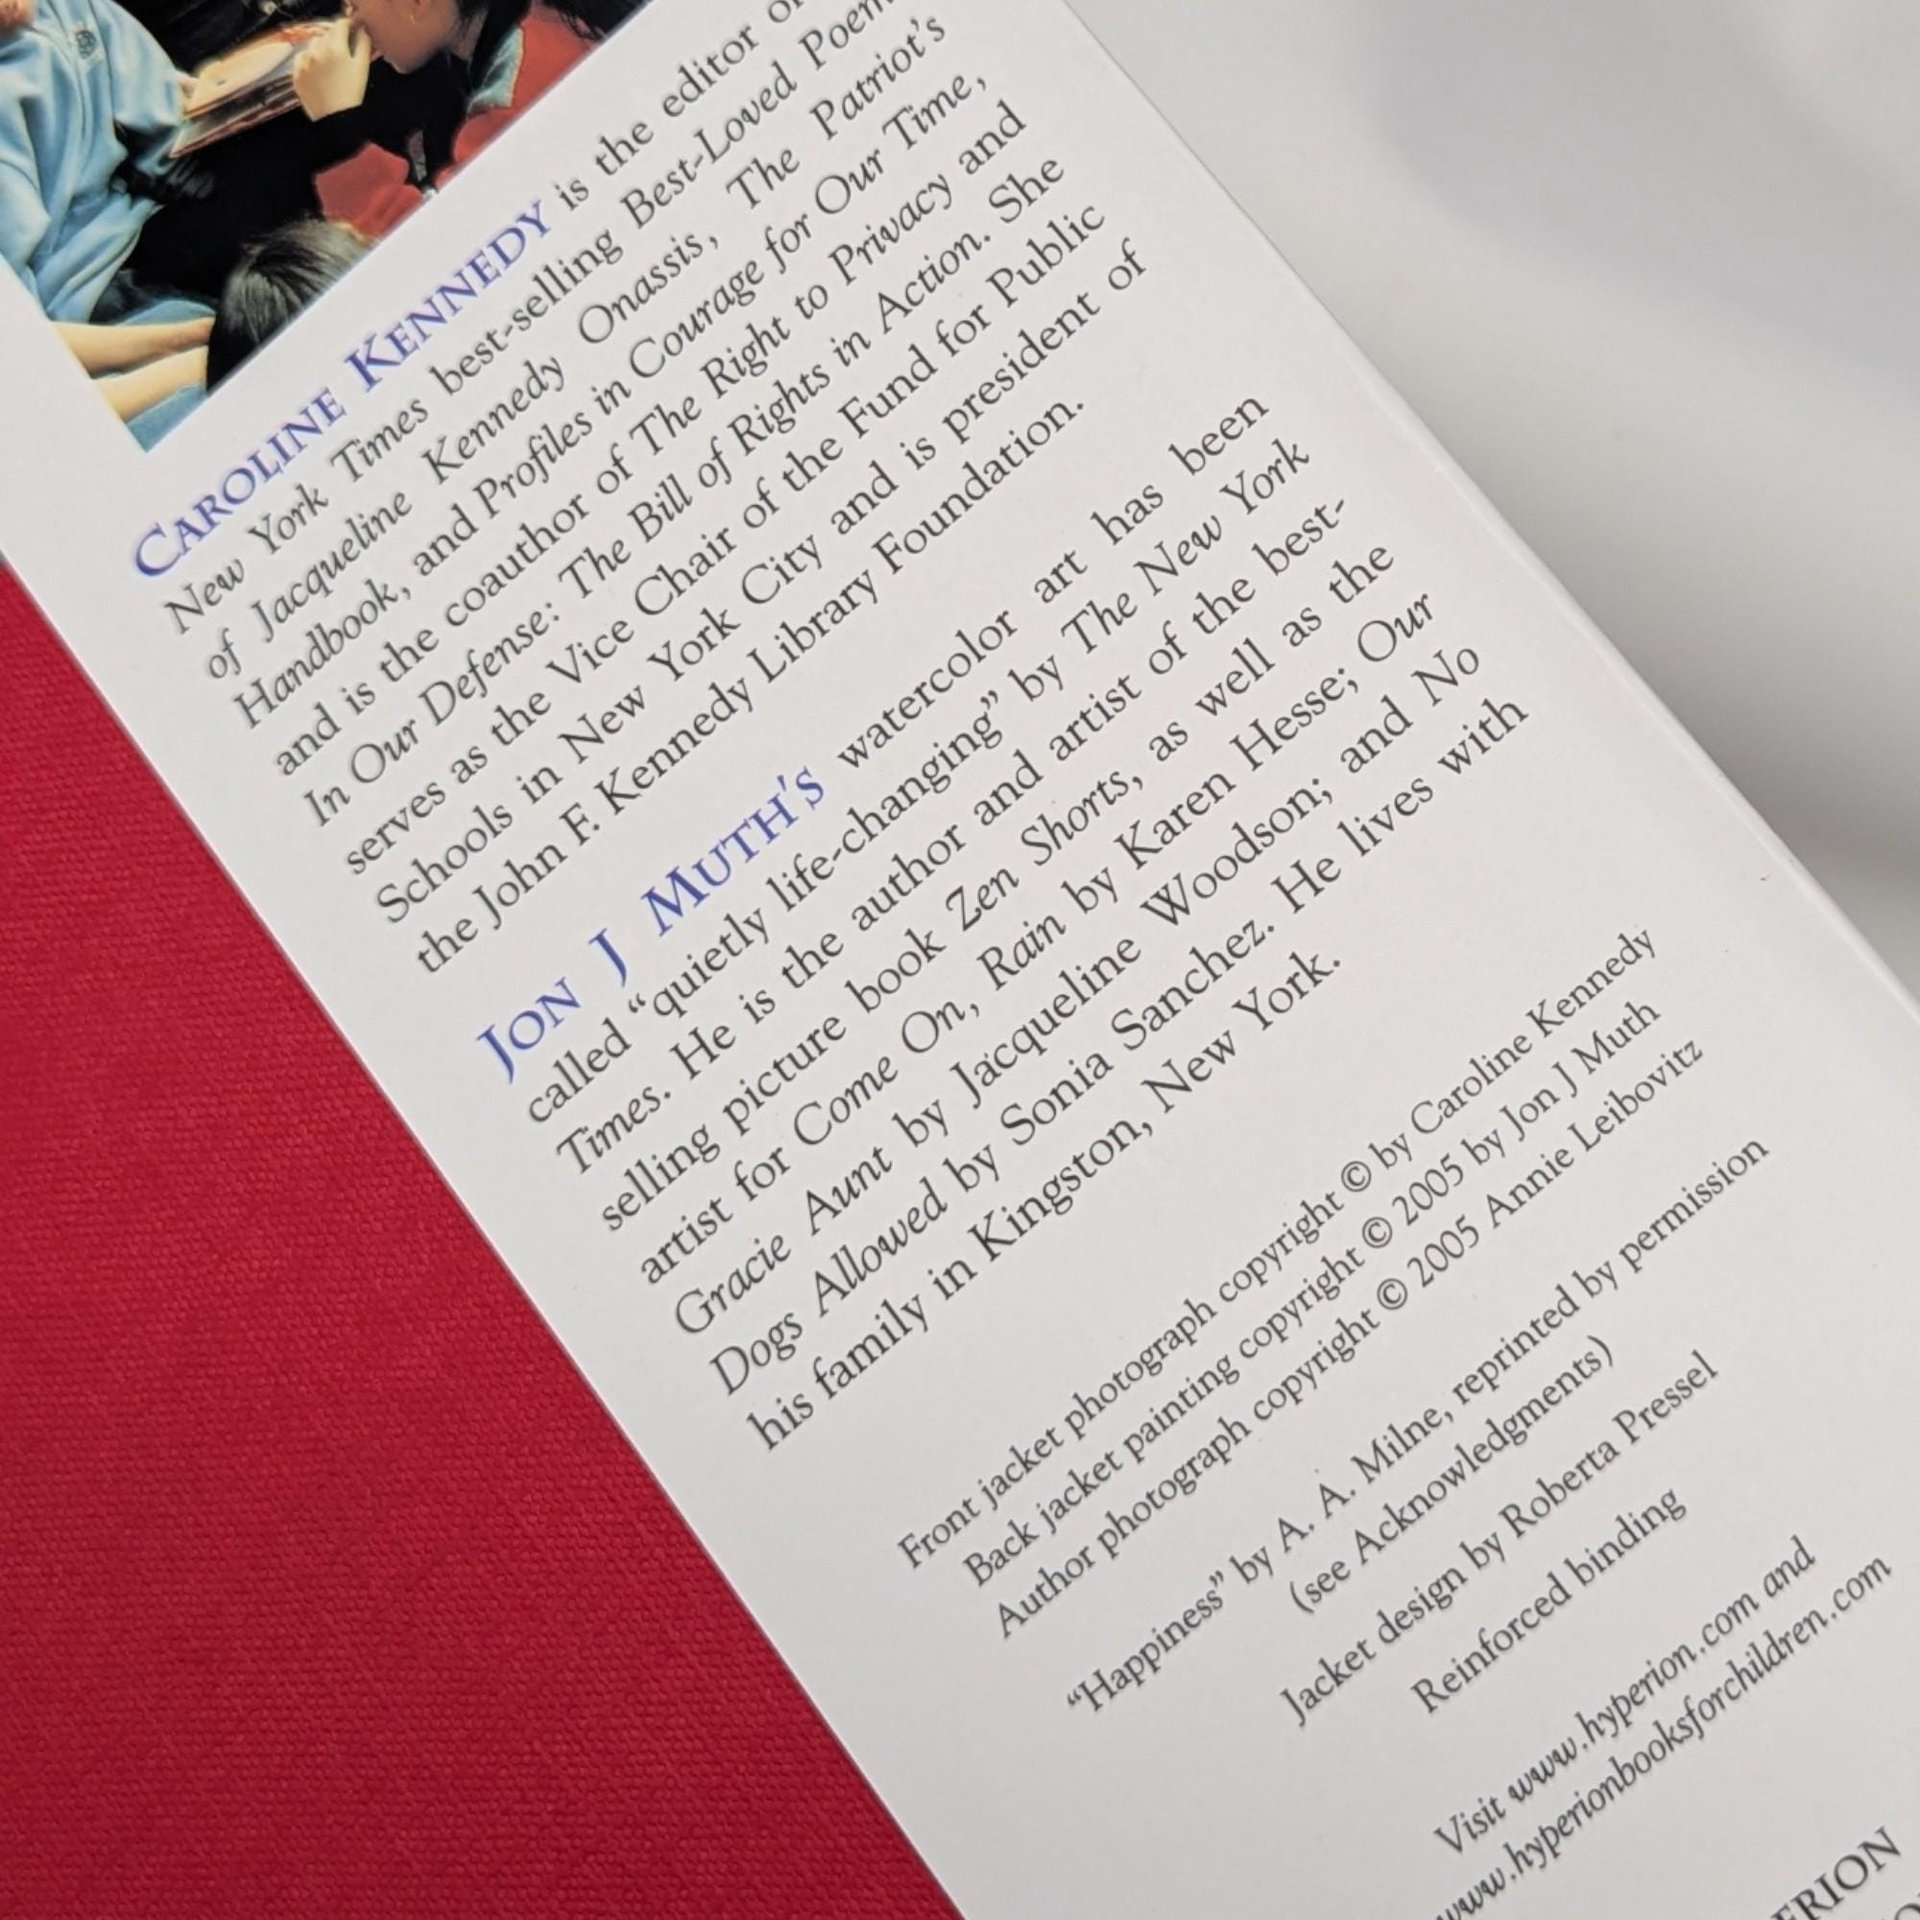 CAROLINE KENNEDY is the editor of
New York Times best-selling Best-Loved Poems
of Jacqueline Kennedy Onassis, The Patriot's
Handbook, and Profiles in Courage for Our Time,
and is the coauthor of The Right to Privacy and
In Our Defense: The Bill of Rights in Action. She
serves as the Vice Chair of the Fund for Public
Schools in New York City and is president of
the John F. Kennedy Library Foundation.
JON J MUTH'S watercolor art has been
called “quietly life-changing” by The New York
Times. He is the author and artist of the best-
selling picture book Zen Shorts, as well as the
artist for Come On, Rain by Karen Hesse; Our
Gracie Aunt by Jacqueline Woodson; and No
Dogs Allowed by Sonia Sanchez. He lives with
his family in Kingston, New York.
Front jacket photograph copyright © by Caroline Kennedy
Back jacket painting copyright © 2005 by Jon J Muth
Author photograph copyright © 2005 Annie Leibovitz
“Happiness” by A. A. Milne, reprinted by permission
(see Acknowledgments)
Jacket design by Roberta Pressel
Reinforced binding
Visit www.hyperion.com and
www.hyperionbooksforchildren.com